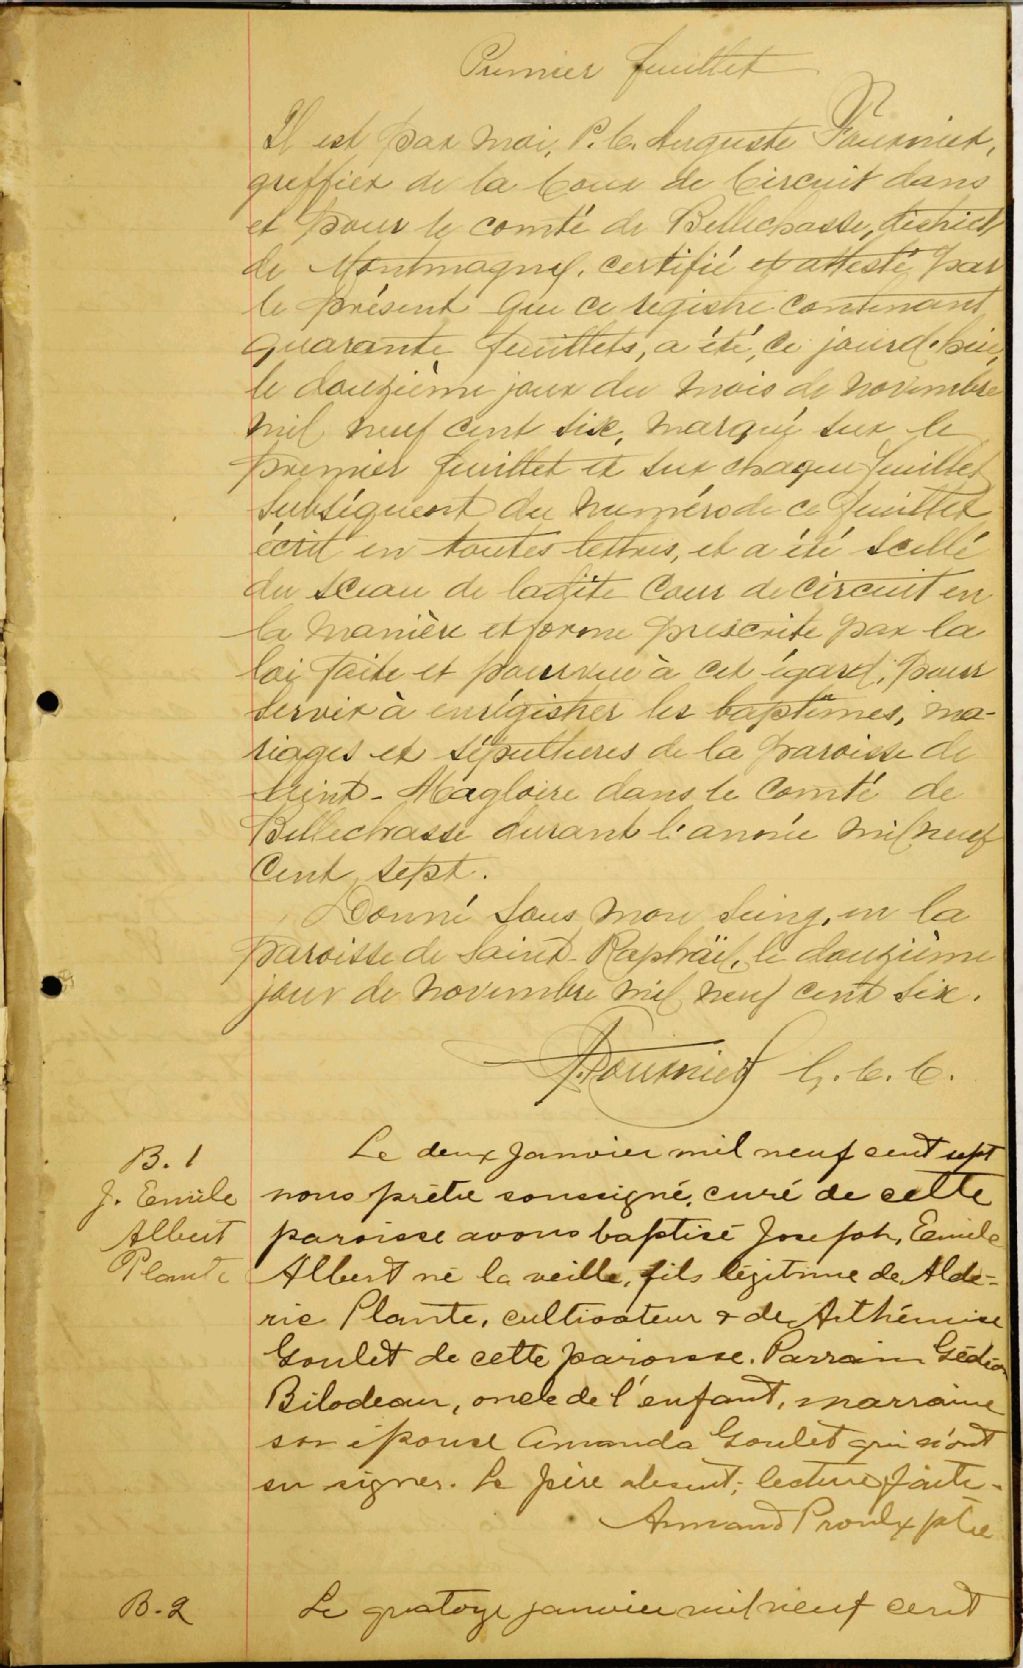 Premier feuillet
Il est par moi, P. C. Auguste Fournier,
greffier de la Cour de Circuit dans
et pour le comté de Bellechasse, district
de Montmagny, certifié et attesté par
le présent que ce registre contenant
quarante feuillets, a été, ce jourd'hui,
le douzième jour du mois de novembre
mil neuf cent six, marqué sur le
premier feuillet et sur chaque feuillet
subséquent du numéro de ce feuillet
écrit en toutes lettres, et a été scellé
du sceau de ladite Cour de Circuit en
la manière et forme prescrite par la
loi faite et pourvue à cet égard, pour
servir à enrégistrer les baptêmes, ma-
riages et sépultures de la paroisse de
Saint-Magloire dans le Comté de
Bellechasse durant l'année mil neuf
Cent sept.
Donné sous mon seing, en la
paroisse de Saint-Raphaël, le douzième
jour de novembre mil neuf cent six.
Fournier G.C.C.
B. 1
J. Emile
Albert
Plante
Le deux janvier mil neuf cent sept
nous prêtre soussigné, curé de cette
paroisse avons baptisé Joseph, Emile
Albert né la veille, fils légitime de Aldé-
ric Plante, cultivateur & de Arthémise
Goulet de cette paroisse. Parrain Gédéon
Bilodeau, oncle de l'enfant, marraine
son épouse Amanda Goulet qui n'ont
su signer. Le père absent; lecture faite.
Armand Proulx ptre
B-2
Le quatorze janvier mil neuf cent